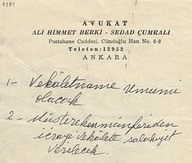 AVUKAT
ALİ HİMMET BERKİ - SEDAD ÇUMRALI
Postahane Caddesi, Cündoğlu Han No. 8-9
Telefon: 12952
ANKARA
1 - Vekâletname umumi
olacak
2 - Müştereken münferiden
icrayı vekâlete salahiyet
verilecek.